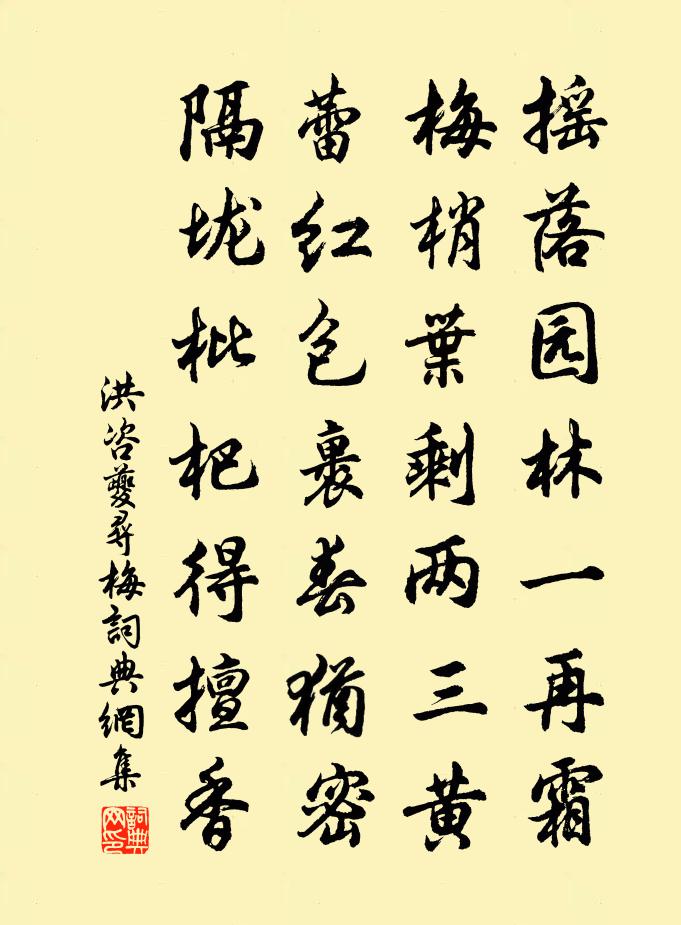 摇落园林一再霜
梅梢葉剩两三黄
蕾红包裹春犹密
隔垅枇杷得擅香
洪咨夔尋梅詞典網集
詞典网印